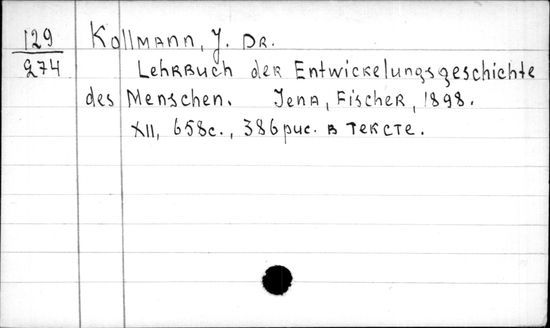 129
274
Kollmann, J. Dr.
Lehrbuch der Entwickelungsgeschichte
des Menschen. Jena, Fischer, 1898.
XII, 658с., 386 рис. в тексте.